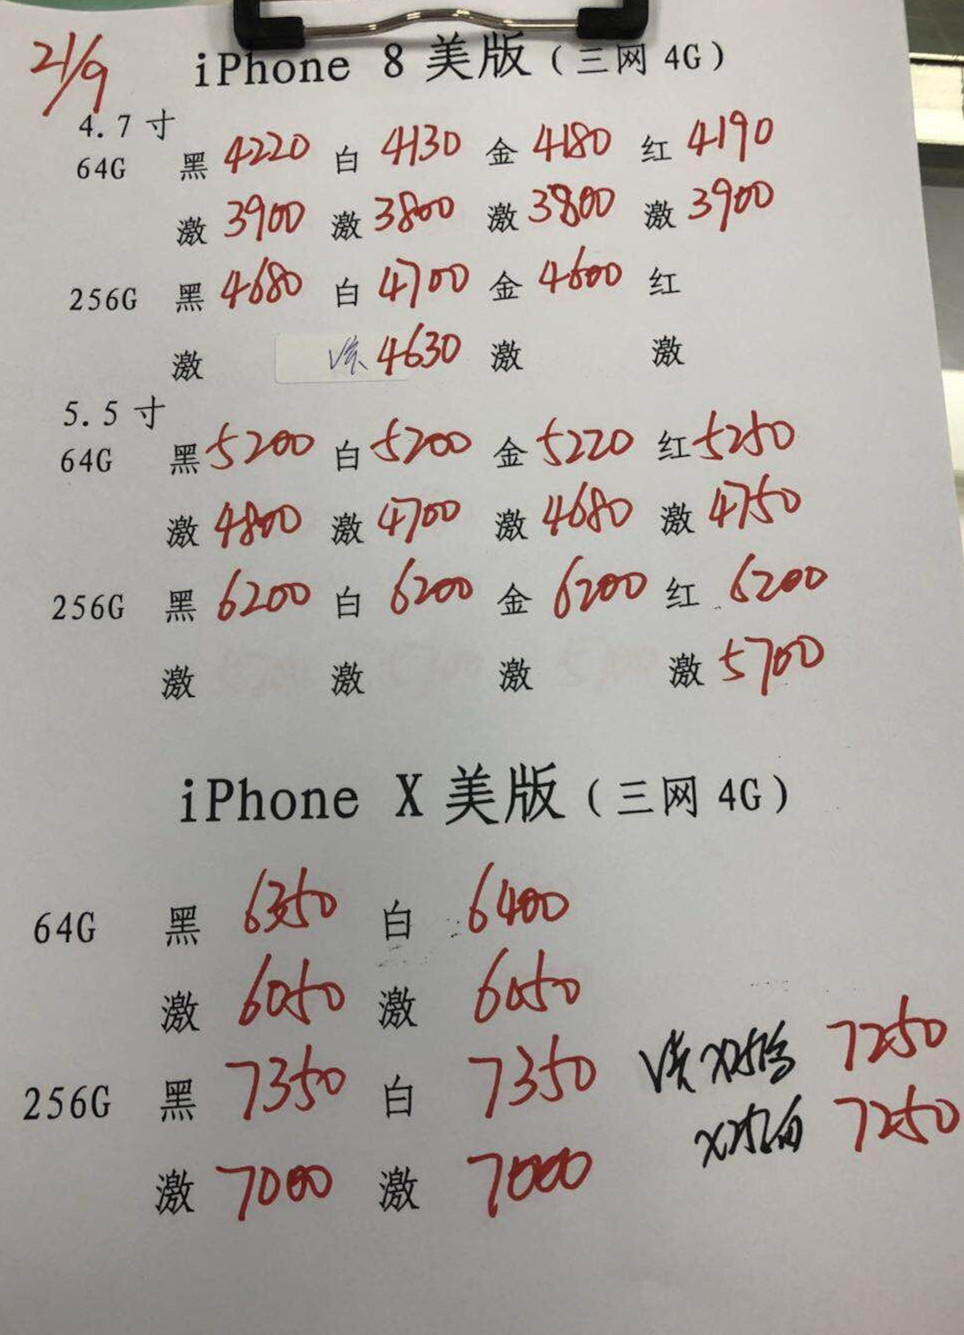 21/9
iPhone 8 美版(三网 4G)
4.7 寸
64G 黑 4220 白 4130 金 4180 红 4190
激 3900 激 3800 激 3800 激 3900
256G 黑 4680 白 4700 金 4600 红
激 4630 激 激
5.5 寸
64G 黑 5200 白 5200 金 5220 红 5250
激 4800 激 4700 激 4680 激 4750
256G 黑 6200 白 6200 金 6200 红 6200
激 激 激 激 5700
iPhone X 美版(三网 4G)
64G 黑 6350 白 6400
激 6050 激 6050
256G 黑 7350 白 7350 7250
激 7000 激 7000 7250